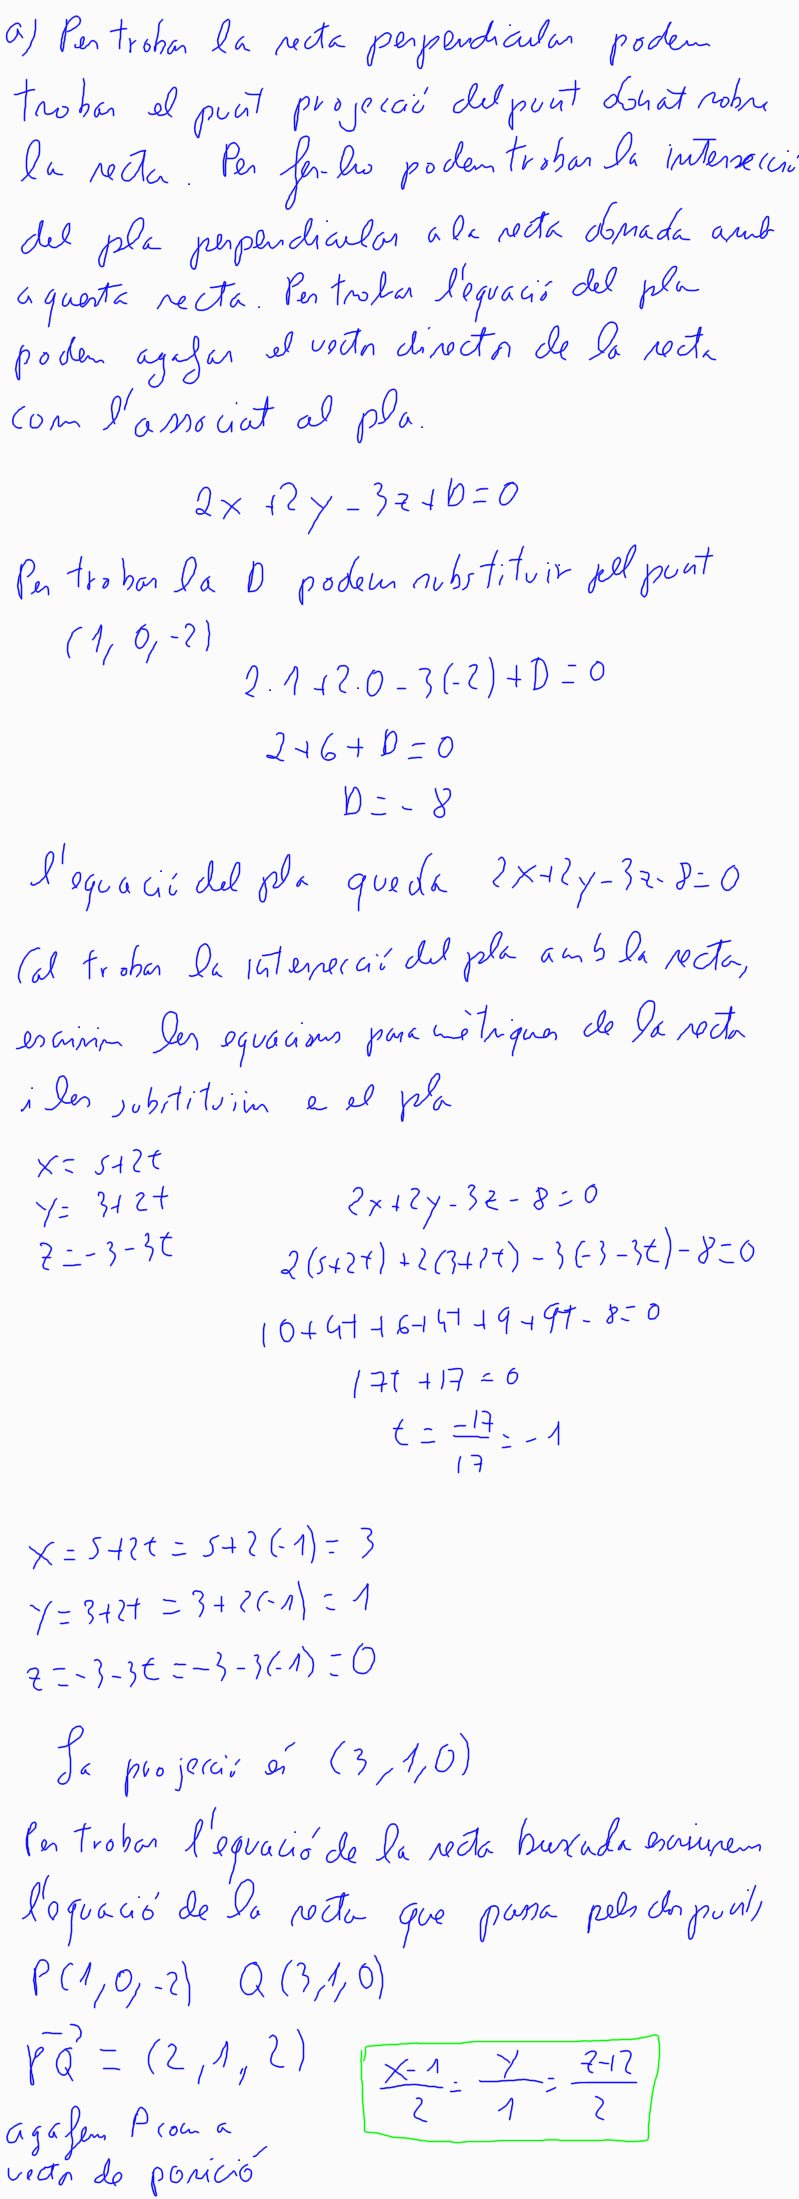 a) Per trobar la recta perpendicular podem
trobar el punt projecció del punt donat sobre
la recta. Per fer-ho podem trobar la intersecció
del pla perpendicular a la recta donada amb
aquesta recta. Per trobar l'equació del pla
podem agafar el vector director de la recta
com l'associat al pla.
2x+2y-3z+D=0
Per trobar la D podem substituir pel punt
(1, 0, -2)
2·1+2·0-3(-2)+D=0
2+6+D=0
D=-8
l'equació del pla queda 2x+2y-3z-8=0
Cal trobar la intersecció del pla amb la recta,
escrivim les equacions paramètriques de la recta
i les substituim e el pla
x=5+2t
y=3+2t
z=-3-3t
2x+2y-3z-8=0
2(5+2t)+2(3+2t)-3(-3-3t)-8=0
10+4t+6+4t+9+9t-8=0
17t+17=0
t=-17/17=-1
x=5+2t=5+2(-1)=3
y=3+2t=3+2(-1)=1
z=-3-3t=-3-3(-1)=0
La projecció és (3,1,0)
Per trobar l'equació de la recta buscada escriurem
l'equació de la recta que passa pels dos punts
P(1,0,-2) Q(3,1,0)
PQ=(2,1,2)
(x-1)/2=y/1=(z+2)/2
agafem P com a
vector de posició